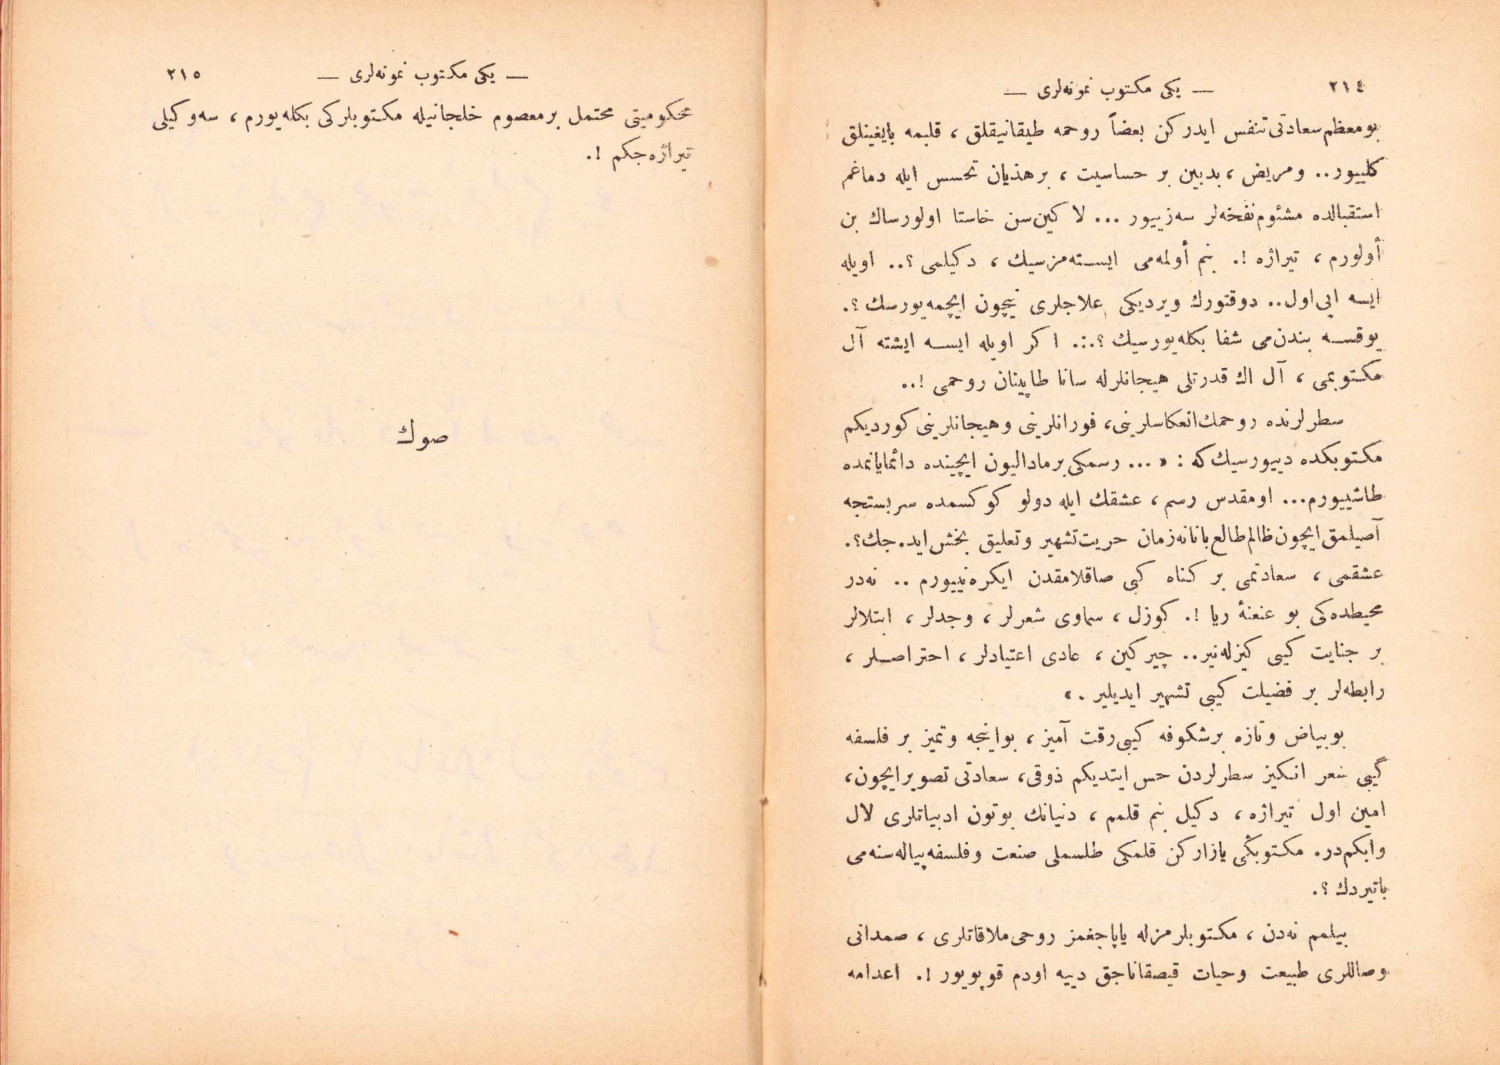 ٢١٤
— یكی مكتوب نمونه‌لری —
بو معظم سعادتی تنفس ایدركن بعضاً روحمه طیقانیقلق ، قلبمه بایغینلق
كلییور.. و مریض ، بدبین بر حساسیت ، بر هذیان تحسس ایله دماغم
استقبالده مشئوم نفخه‌لر سه‌زییور ... لاكین سن خاستا اولورساك بن
أولورم ، تیراژه !. بنم أولمه‌می ایسته‌مزسیك ، دكیلمی ؟.. اویله
ایسه ایی اول.. دوقتورك ویردیكی علاجلری نیچون ایچمه‌یورسك ؟.
یوقسه بندن‌می شفا بكله‌یورسیك ؟.:. اكر اویله ایسه ایشته آل
مكتوبمی ، آل اك قدرتلی هیجانلرله سانا طاپینان روحمی !..
سطرلرنده روحمك انعكاسلرینی، فورانلرینی و هیجانلرینی كوردیكم
مكتوبكده دییورسیك كه : « ... رسمكی بر مادالیون ایچینده دائما یانمده
طاشییورم... او مقدس رسم ، عشقك ایله دولو كوكسمده سربستجه
آصیلمق ایچون ظالم طالع بانا نه‌زمان حریت تشهیر و تعلیق بخش ایده‌جك؟.
عشقمی ، سعادتمی بر كناه كبی صاقلامقدن ایكره‌نییورم .. نه‌در
محیطده‌كی بو عنعنهٔ ریا !. كوزل ، سماوی شعرلر ، وجدلر ، ابتلالر
بر جنایت كیبی كیزله‌نیر.. چیركین ، عادی اعتیادلر ، احتراصلر ،
رابطه‌لر بر فضیلت كیبی تشهیر ایدیلیر . »
بو بیاض و تازه بر شكوفه كیبی رقت آمیز ، بو اینجه و تمیز بر فلسفه
كیبی شعر انكیز سطرلردن حس ایتدیكم ذوقی، سعادتی تصویر ایچون،
امین اول تیراژه ، دكیل بنم قلمم ، دنیانك بوتون ادبیاتلری لال
و ابكم‌در. مكتوبڭی یازاركن قلمكی طلسملی صنعت و فلسفه پیاله‌سنه‌می
باتیردك ؟.
بیلمم نه‌دن ، مكتوبلرمزله یاپاجغمز روحی ملاقاتلری ، صمدانی
وصاللری طبیعت و حیات قیصقاناجق دییه اودم قوپویور !. اعدامه
٢١٥
— یكی مكتوب نمونه‌لری —
محكومیتی محتمل بر معصوم خلجانیله مكتوبلركی بكله‌یورم ، سه‌وكیلی
تیراژه‌جكم !.
صوك